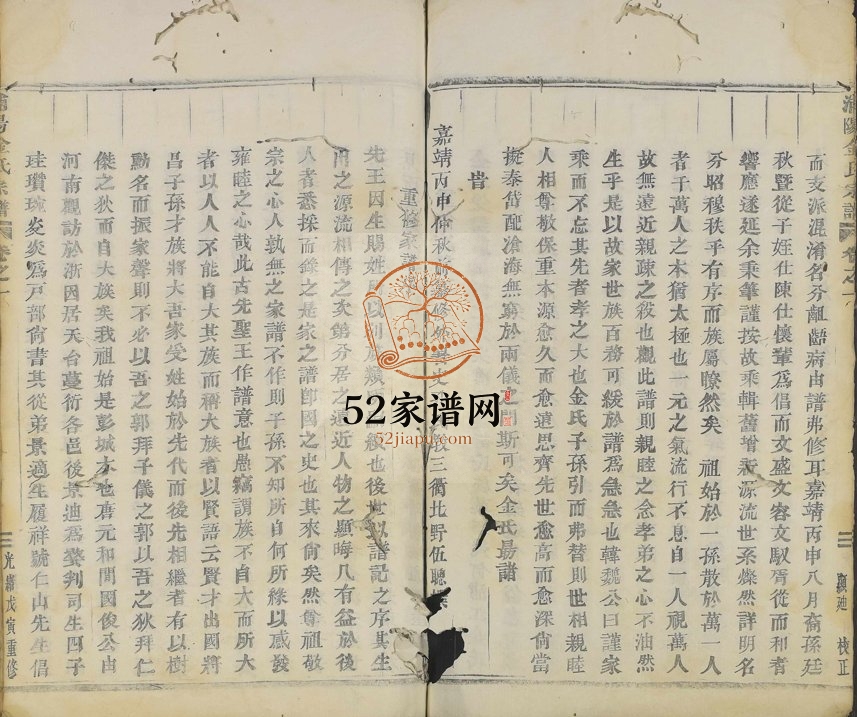 浦陽金氏宗譜 卷之一
而支派混淆名分齟齬病由譜弗修耳嘉靖丙申八月裔孫廷
秋暨從子姪仕陳仕懷輩爲倡而文盛文容文馭胥從而和者
響應遂延余秉筆謹按故乘輯舊增新源流世系燦然詳明名
分昭穆秩乎有序而族屬瞭然矣 祖始於一孫散於萬一人
者千萬人之本猶太極也一元之氣流行不息自一人視萬人
故無遠近親疎之殺也觀此譜則親睦之念孝弟之心不油然
生乎是以故家世族百務可緩於譜爲急焉也韓魏公曰謹家
乘而不忘其先者孝之大也金氏子孫引而弗替則世相親睦
人相尊敬保重本源愈久而愈遠思齊先世愈高而愈深尙當
擬泰岱配滄海無窮於兩儀之間斯可矣金氏勗諸
旹
嘉靖丙申仲秋
三衢北野伍聰
顯迪 校正
重修家譜
先王因生賜姓
族類
後世以譜記之序其生
之源流相傳之次第分居之
近人物之顯晦凡有益於後
人者悉採而錄之是家之譜卽國之史也其來尙矣然尊祖敬
宗之心人孰無之家譜不作則子孫不知所自何所緣以感發
雍睦之心哉此古先聖王作譜意也愚竊謂族不自大而所大
者以人人不能自大其族而稱大族者以賢語云賢才出國將
昌子孫才族將大吾家受姓始於先代而後先相繼者有以樹
勳名而振家聲則不必以吾之郭拜子儀之郭以吾之狄拜仁
傑之狄而自大族矣我祖始是彭城 也唐元和間國俊公由
河南觀訪於浙因居天台蔓衍各邑後景迪爲婺判司生四子
珪瓚琬炎炎爲戸部尙書其從弟景適生履祥號仁山先生倡
浦陽金氏宗譜 卷之一
光緒戊寅重修
52家谱网
52jiapu.com